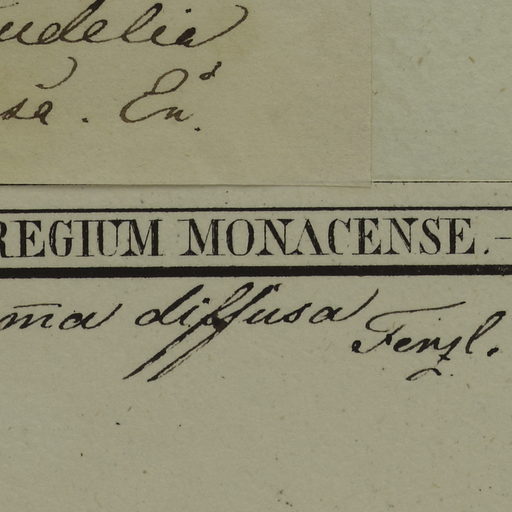 udelia
sa. End.
REGIUM MONACENSE.—
m̅a diffusa Fenzl.